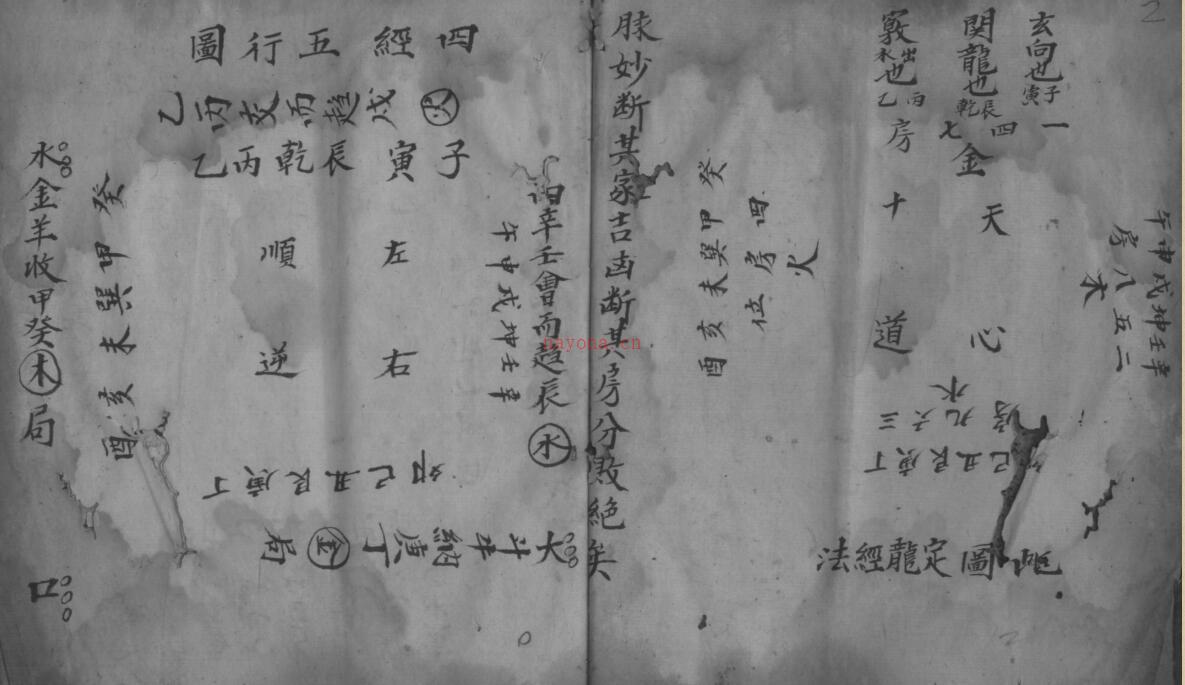 玄向也 子寅
関龍也 辰乾
竅出水也 丙乙
一四七
金
房十
天心
道
午申戌坤壬辛
房八五二
水
癸甲巽未亥酉
四房位
火
房九六三
水
己丑艮庚丁
圖定龍經法
脉妙断其家吉凶断其房分敗絶矣
四經五行圖
火
乙丙交而趨戌
子寅辰乾丙乙
左右
順逆
辛壬會而趨辰水
午申戌坤壬辛
己丑艮庚丁
大斗牛納庚丁金局
癸甲巽未亥酉
水金羊收甲癸木局
口
nayona.cn
2